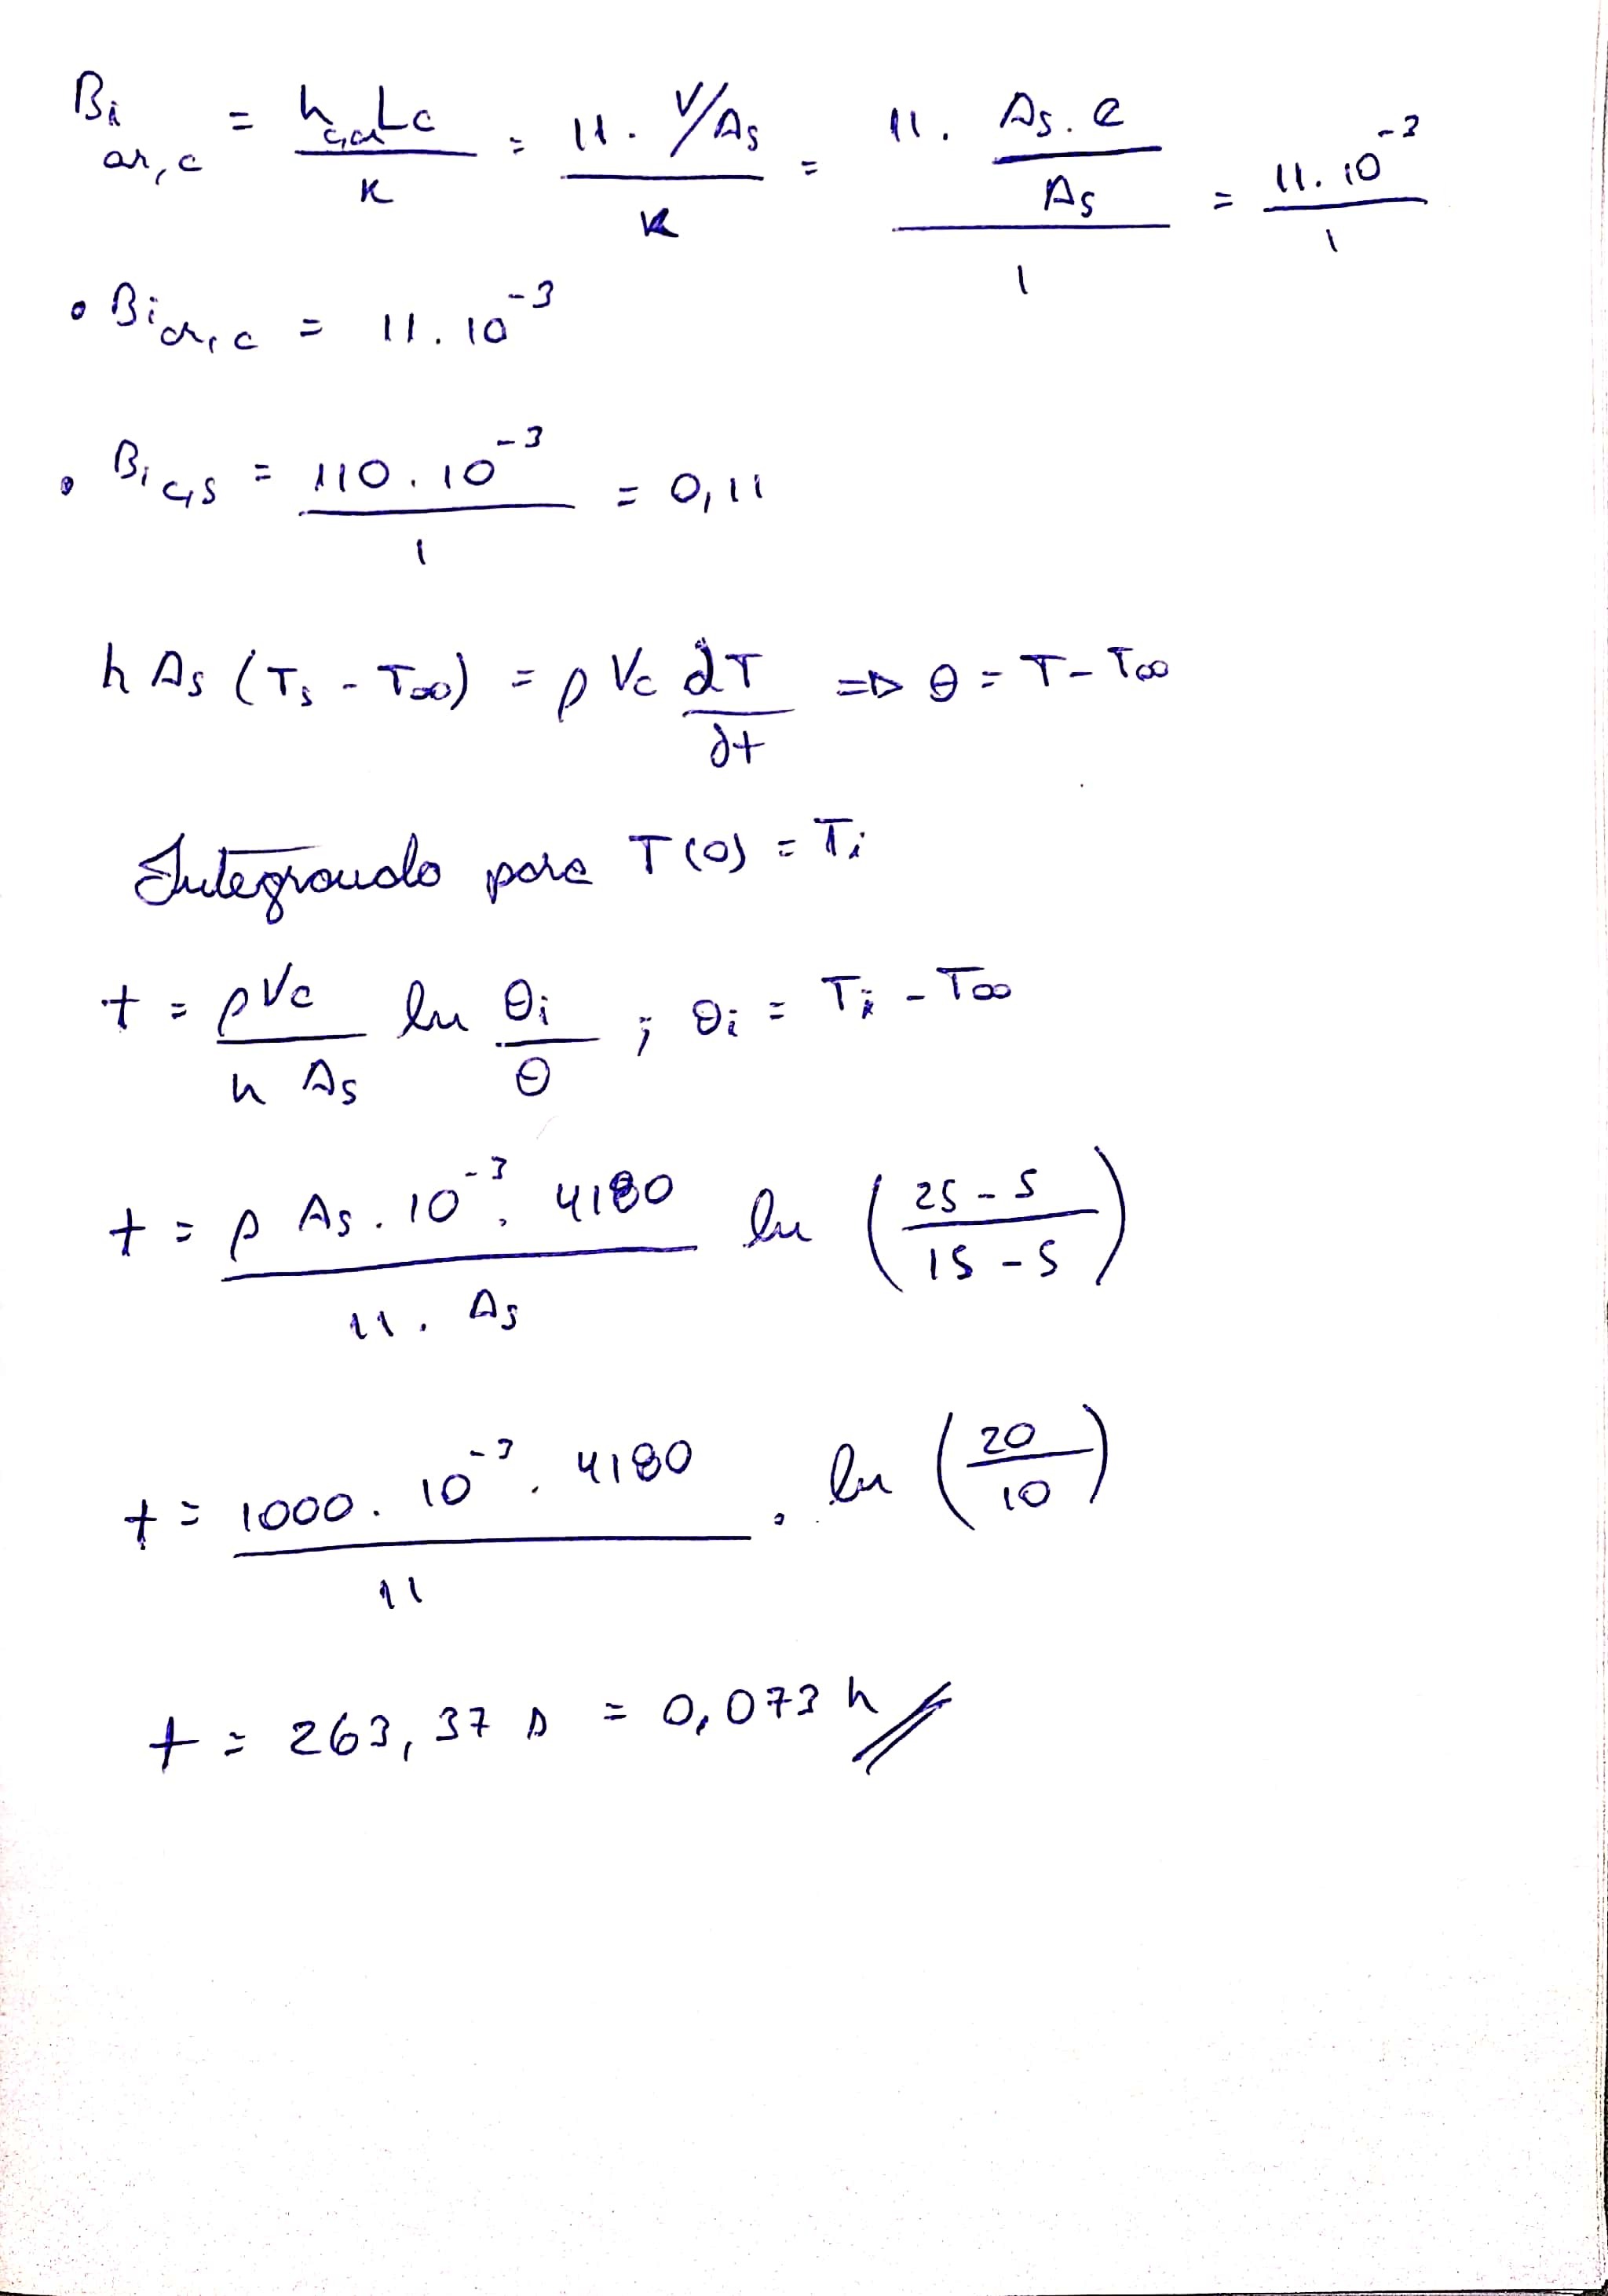 Bi ar,c = h c,ar Lc / K = 11. V/As / K = 11. As.e / As / 1 = 11.10^-3 / 1
• Bi ar,c = 11.10^-3
• Bi c,s = 110.10^-3 / 1 = 0,11
h As (Ts - T∞) = ρ Vc ∂T / ∂t => θ = T - T∞
Integrando para T(0) = Ti
t = ρVc / h As ln θi / θ ; θi = Ti - T∞
t = ρ As.10^-3. 4180 / 11. As ln (25-5 / 15-5)
t = 1000. 10^-3. 4180 / 11 . ln (20 / 10)
t = 263,37 s = 0,073 h //